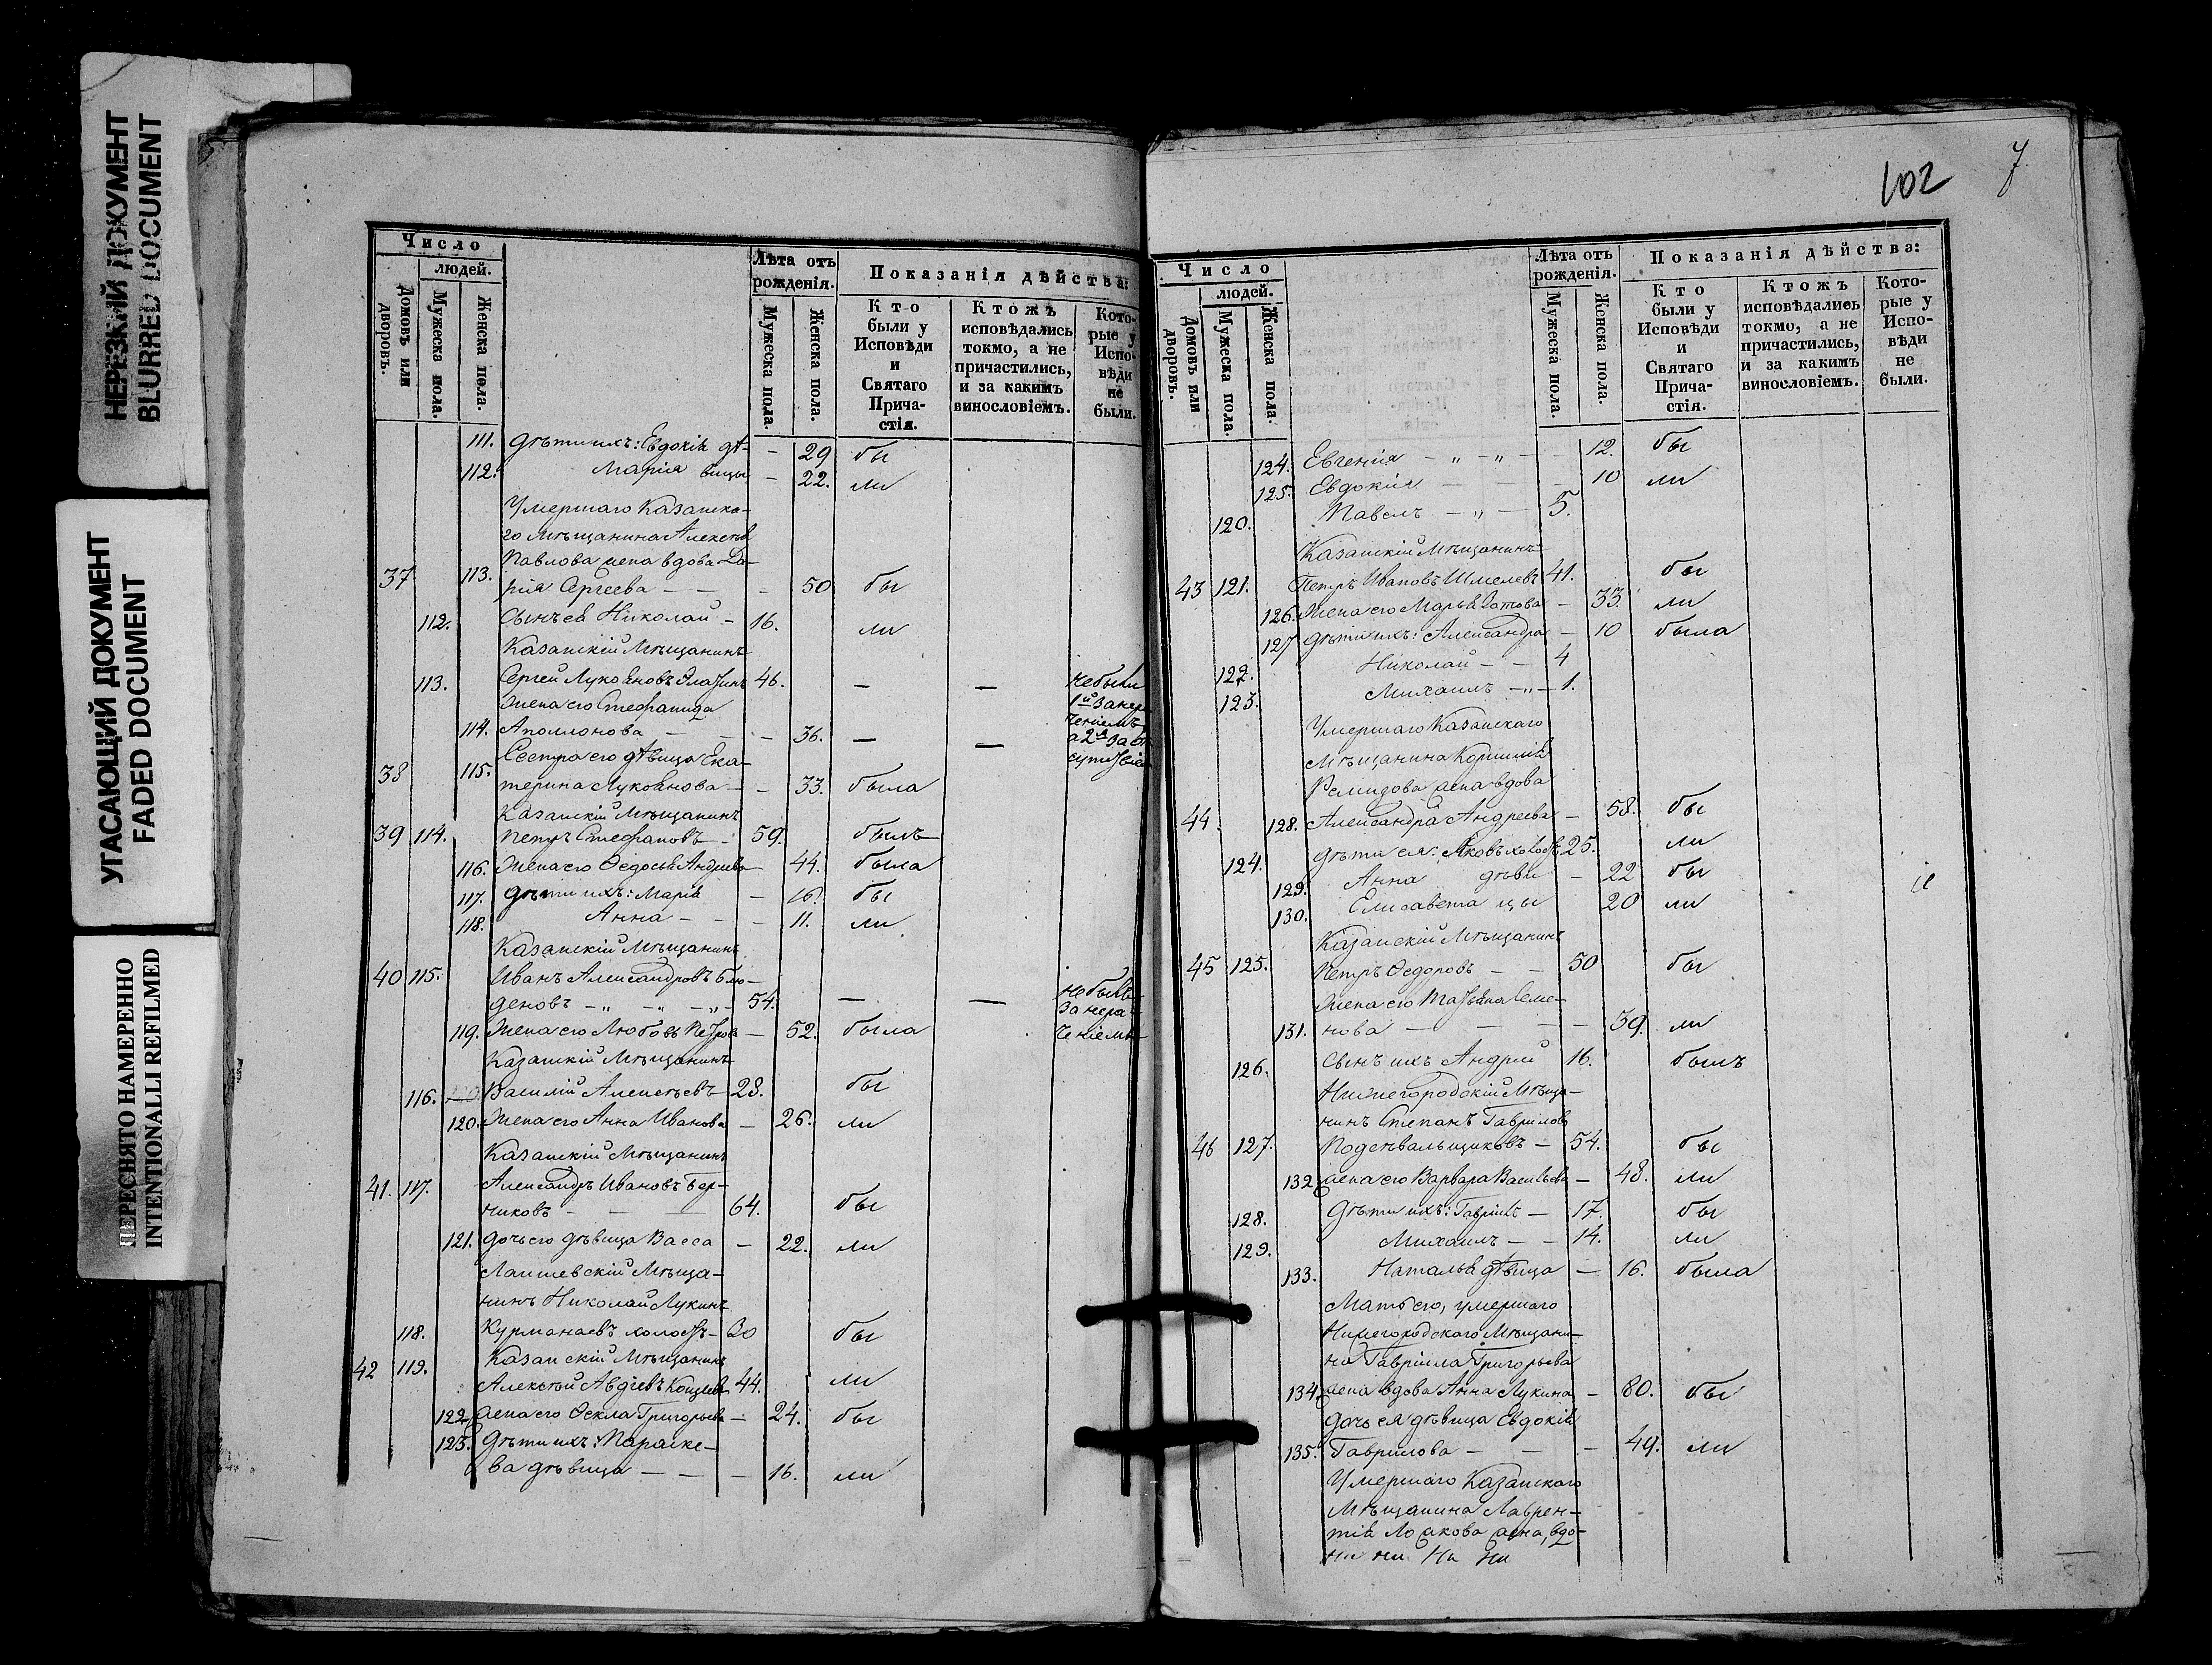 НЕРЕЗКИЙ ДОКУМЕНТ
BLURRED DOCUMENT
УГАСАЮЩИЙ ДОКУМЕНТ
FADED DOCUMENT
ПЕРЕСНЯТО НАМЕРЕННО
INTENTIONALLI REFILMED
Число
людей.
Домовъ или дворовъ.
Мужеска пола.
Женска пола.
Лѣта отъ рожденія.
Мужеска пола.
Женска пола.
Показанія дѣйства:
Кто были у Исповѣди и Святаго Причастія.
Ктожъ исповѣдались токмо, а не причастились, и за какимъ винословіемъ.
Которые у Исповѣди не были.
111. дѣти ихъ: Евдокія дѣ- - 29 бы
112. Марія вицы - 22. ли
Умершаго Казанска-
го мѣщанина Алексѣя
Павлова жена вдова Да-
37 113. рія Сергеева - - - 50 бы
112. Сынъ ея Николай - 16. ли
Казанскій Мѣщанинъ
113. Сергей Лукояновъ 46. — — не были
жена его Стефанида 1й за нера
114. Аполлонова - - - 36. — — чениемъ а 2я за от
Сестра его дѣвица Ека-
38 115. терина Лукоянова - - 33. была
Казанскій Мѣщанинъ
39 114. Петръ Стефановъ - 59. былъ
116. жена его Ѳедосья Андреева 44. была
117. дѣти ихъ: Марія - 16. бы
118. Анна - - - 11. ли
Казанскій Мѣщанинъ
40 115. Иванъ Александровъ Блю-
деновъ - „ - „ - „ - 54. — — не былъ за нера
119. жена его Любовь Петрова - 52. была чениемъ
Казанскій Мѣщанинъ
116. Василій Алексѣевъ 28. бы
120. жена его Анна Иванова - 26. ли
Казанскій Мѣщанинъ
Александръ Ивановъ Бер-
41. 117. никовъ - - - 64. бы
121. дочь его дѣвица Васса - 22. ли
Лаишевскій Мѣща-
нинъ Николай Лукинъ
118. Курманаевъ холостъ - 30 бы
Казанскій Мѣщанинъ
42 119. Алексѣй Авдѣевъ 44. ли
122. жена его Ѳекла Григорьева - 24. бы
123. дѣти ихъ: Параске-
ва дѣвица - - - 16. ли
102 7
Число
людей.
Домовъ или дворовъ.
Мужеска пола.
Женска пола.
Лѣта отъ рожденія.
Мужеска пола.
Женска пола.
Показанія дѣйства:
Кто были у Исповѣди и Святаго Причастія.
Ктожъ исповѣдались токмо, а не причастились, и за какимъ винословіемъ.
Которые у Исповѣди не были.
124. Евгенія - „ - „ - - 12. бы
125. Евдокія - - - 10 ли
120. Павелъ - „ - 5.
Казанскій Мѣщанинъ
43 121. Петръ Ивановъ Шмелевъ 41. бы
126. жена его Марья - 33. ли
127 дѣти ихъ: Александра - 10 была
122. Николай - - 4
123. Михаилъ - „ - 1.
Умершаго Казанскаго
мѣщанина Корнилія
Ремизова жена вдова
44. 128. Александра Андреева - 58. бы
124. дѣти ея: Яковъ холостъ 25. ли
129. Анна дѣви - 22 бы
130. Елисавета цы 20 ли
Казанскій Мѣщанинъ
45 125. Петръ Ѳедоровъ - - 50 бы
жена его Татьяна Семе-
131. нова - - - - 39. ли
126. сынъ ихъ Андрей 16. былъ
Нижегородскій Мѣща-
нинъ Степанъ Гавриловъ
46 127. Подсѣвальщиковъ - 54. бы
132. жена его Варвара Васильева - 48. ли
128. дѣти ихъ: Гавріилъ - 17. бы
129. Михаилъ - - 14. ли
133. Наталья дѣвица - 16. была
Мать его, умершаго
Нижегородскаго Мѣщани-
на Гавріила Григорьева
134. жена вдова Анна Лукина - 80. бы
дочь ея дѣвица Евдокія
135. Гаврилова - - - 49. ли
Умершаго Казанскаго
Мѣщанина Лаврен-
тія жена, вдо-